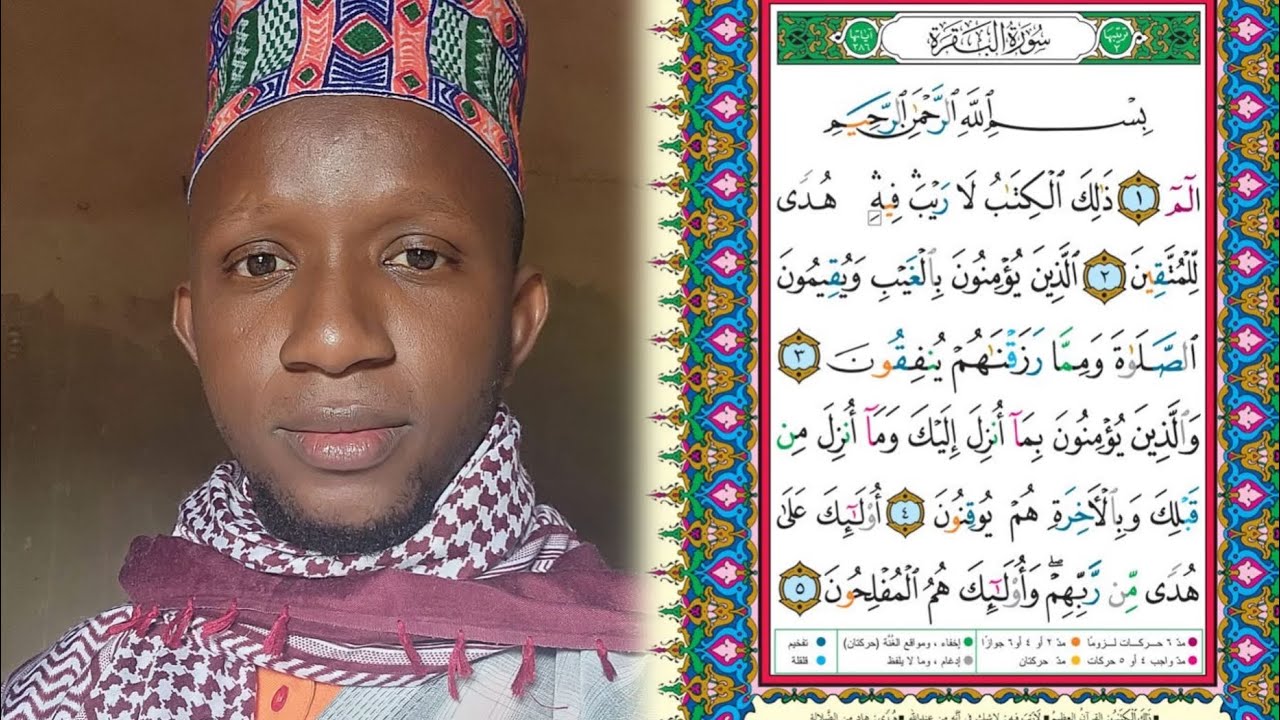 ترتيبها ٢
سُورَةُ الْبَقَرَةِ
آياتها ٢٨٦
بِسْمِ ٱللَّهِ ٱلرَّحْمَٰنِ ٱلرَّحِيمِ
الٓمٓ ١ ذَٰلِكَ ٱلْكِتَٰبُ لَا رَيْبَ ۛ فِيهِ ۛ هُدًى
لِّلْمُتَّقِينَ ٢ ٱلَّذِينَ يُؤْمِنُونَ بِٱلْغَيْبِ وَيُقِيمُونَ
ٱلصَّلَوٰةَ وَمِمَّا رَزَقْنَٰهُمْ يُنفِقُونَ ٣
وَٱلَّذِينَ يُؤْمِنُونَ بِمَآ أُنزِلَ إِلَيْكَ وَمَآ أُنزِلَ مِن
قَبْلِكَ وَبِٱلْءَاخِرَةِ هُمْ يُوقِنُونَ ٤ أُو۟لَٰٓئِكَ عَلَىٰ
هُدًى مِّن رَّبِّهِمْ ۖ وَأُو۟لَٰٓئِكَ هُمُ ٱلْمُفْلِحُونَ ٥
مدّ ٦ حركات لزومًا مدّ ٢ أو ٤ أو ٦ جوازًا إخفاء ، ومواقع الغُنَّة (حركتان) تفخيم
مدّ واجب ٤ أو ٥ حركات مدّ حركتان إدغام ، وما لا يلفظ قلقلة